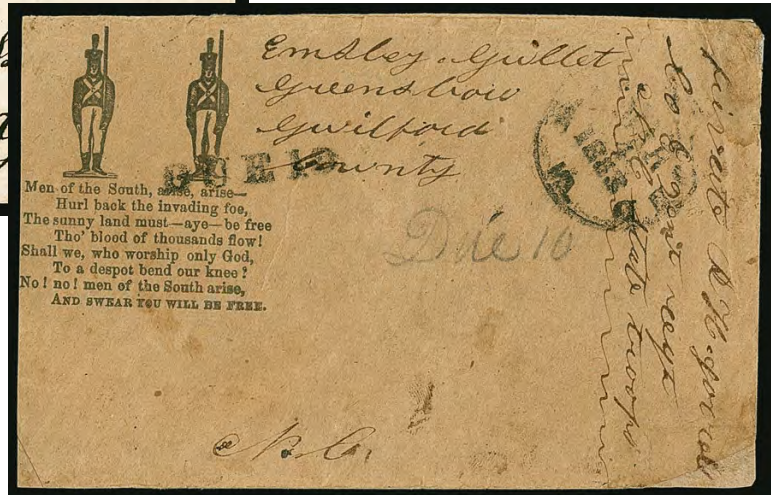 Emsley Gullet
Greensbow
Guilford
County
DUE 10
Men of the South, arise, arise—
Hurl back the invading foe,
The sunny land must—aye—be free
Tho' blood of thousands flow!
Shall we, who worship only God,
To a despot bend our knee?
No! no! men of the South arise,
AND SWEAR YOU WILL BE FREE.
Due 10
N. C.
1862
private D H
Co E regt
state troops